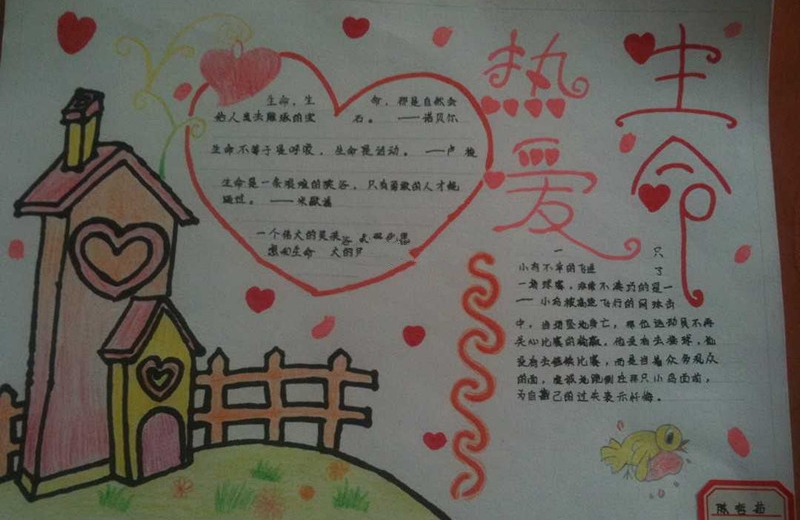 热爱
生命
生命，生 命，那是自然会
给人类去雕琢的宝 石。 ——诺贝尔
生命不等于是呼吸，生命是活动。 ——卢 梭
生命是一条艰险的峡谷，只有勇敢的人才能
通过。 ——米歇潘
一个伟大的灵魂
生命
一 只
小鸟不幸的飞进 了
小鸟被高速飞行的网球击
中，当场坠地身亡，那位运动员不再
关心比赛的输赢，他没有去接球，也
没有去继续比赛，而是当着众多观众
的面，虔诚地跪倒在那只小鸟面前，
为自 己的过失表示忏悔。
陈